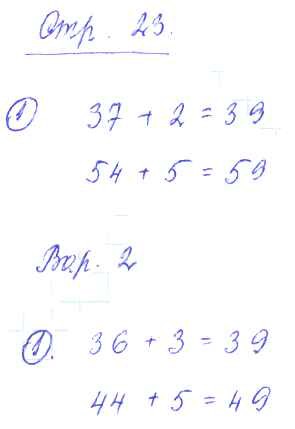 Стр. 23.
① 37 + 2 = 39
54 + 5 = 59
Вар. 2
①. 36 + 3 = 39
44 + 5 = 49